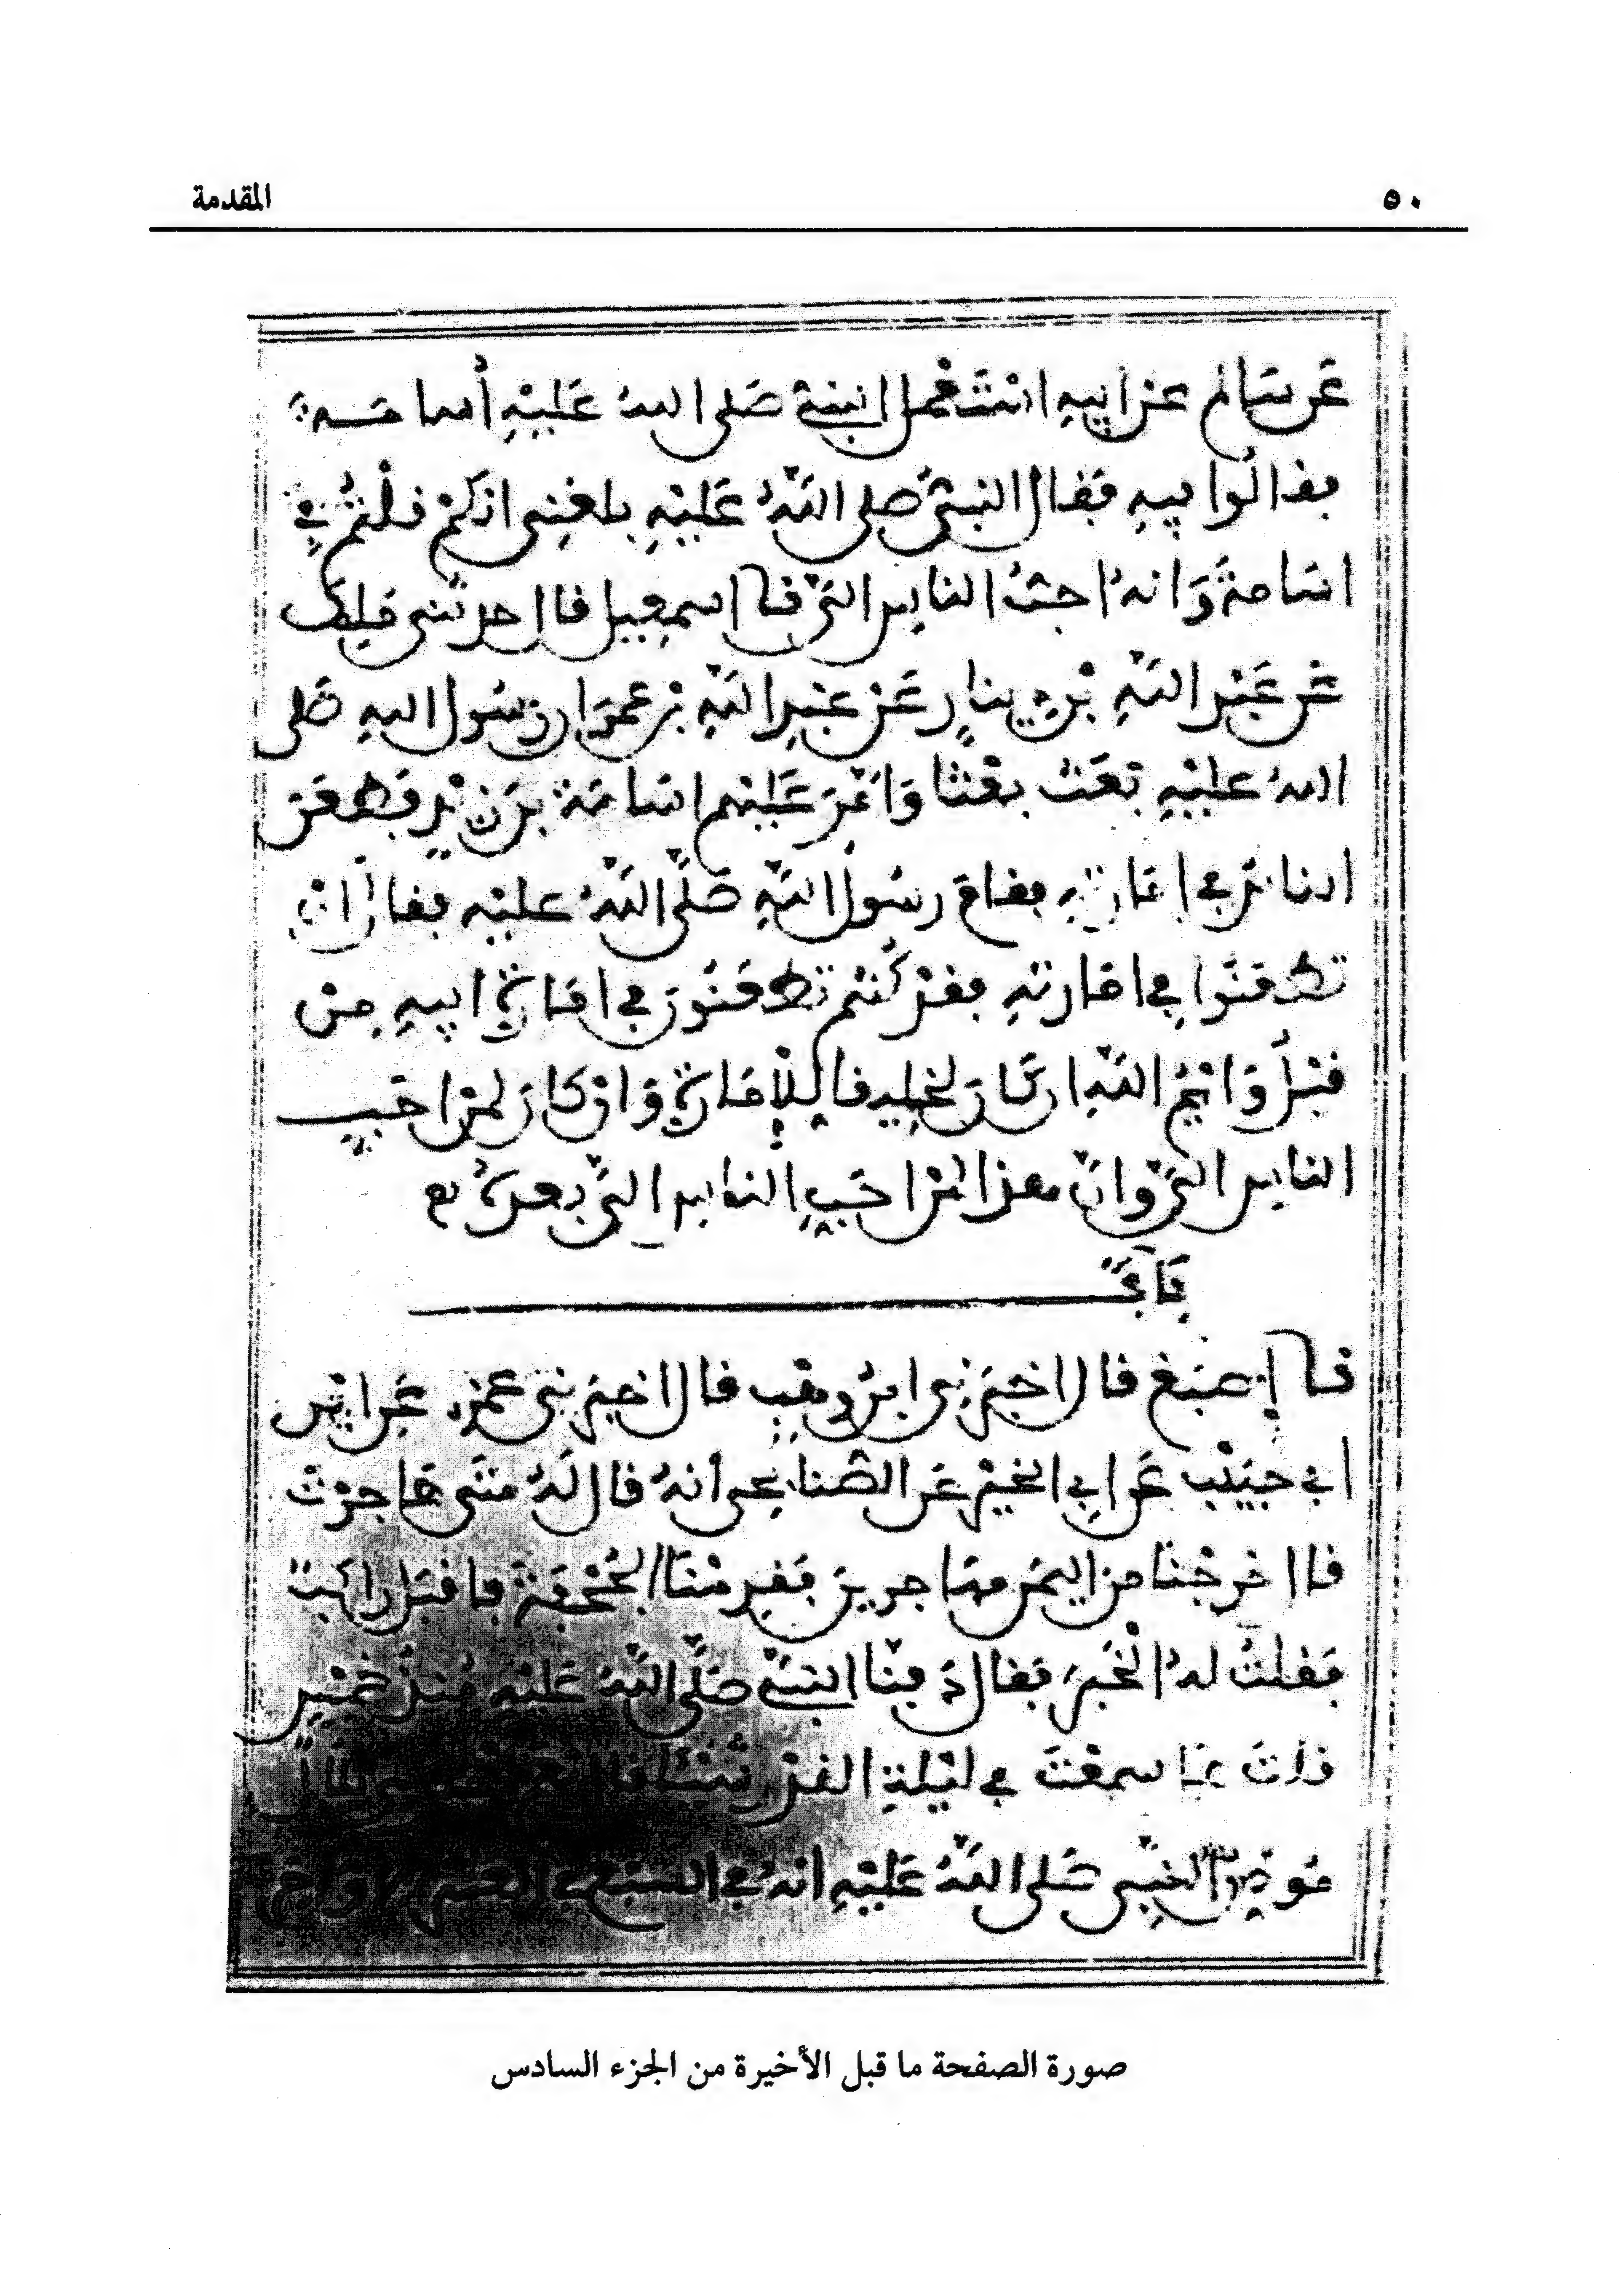 ٥٠
المقدمة
عَن سَالم عن ابيهِ اسْتَعْمل النبيُّ صَلى اللهُ عَليْهِ أُسامَـة
فقالُوا فيهِ فقال النبيُّ صَلى اللهُ عَليْهِ بلغنِى انكمْ قلْتُمْ في
اسَامةَ وَانهُ احبُّ الناسِ اليَّ نا اسمعِيل قال حدثنى مَلِك
عَن عَبْدِ اللهِ بْن دِينارٍ عَنْ عَبْدِ اللهِ بْن عمرَ ان رَسُول اللهِ صَلى
اللهُ عليْهِ بَعَثَ بعْثا وَأمَّرَ عَليْهم اسَامَةَ بنَ زيْدٍ فطعَن
الناسُ في إمَارتِهِ فقامَ رسُولُ اللهِ صَلَّى اللهُ عليْهِ فقال انْ
تطعَنُوا في امَارتهِ فقدْ كُنْتم تطعَنُونَ في امَارةِ ابيهِ مِنْ
قبْلُ وَايْمُ اللهِ ان كَانَ لخلِيقا لِلْإمَارةِ وَإنْ كانَ لمنْ احَبِّ
الناسِ اليَّ وانّ هذا لمنْ احَبِّ الناسِ اليَّ بعدَهُ
بَابٌ
نا أصْبَغ قال اخبَرنِي ابنُ وهْبٍ قال اخبَرَنِي عَمْرو عَن ابْنِ
ابي حبِيْب عَن ابِي الخيْرِ عَن الصُّنابحِي أنهُ قال لَهُ مَتَى هَاجرْتَ
قال خرجْنَا من اليمَنِ مهَاجرينَ فقدِمْنَا الجُحْفَةَ فأقبَلَ راكبٌ
فقلتُ لهُ الْخَبَرَ فقال دَفَنَّا النبيَّ صَلَّى اللهُ عَليْهِ مُنذُ خَمْسٍ
قلتُ هَل سمِعْتَ في ليْلةِ القدْرِ شَيْئا قال نعم
مُوذنُ النبِّي صَلى اللهُ عَليْهِ أنهُ في السَّبْع في العَشْرِ الأواخر
صورة الصفحة ما قبل الأخيرة من الجزء السادس